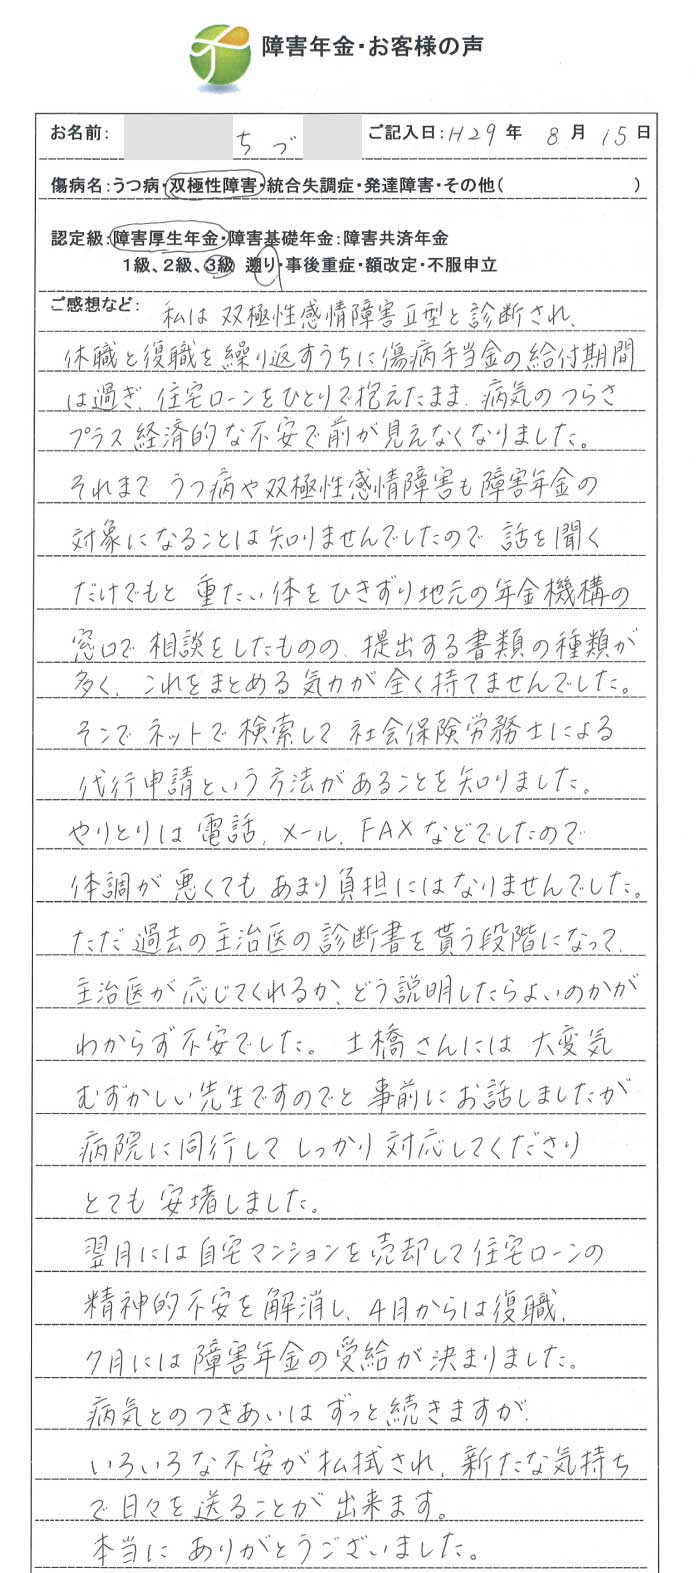 障害年金・お客様の声
お名前: ちづ ご記入日: H29年 8月 15日
傷病名：うつ病・双極性障害・統合失調症・発達障害・その他( )
認定級：障害厚生年金・障害基礎年金：障害共済年金
1級、2級、3級 遡り・事後重症・額改定・不服申立
ご感想など： 私は双極性感情障害Ⅱ型と診断され、
休職と復職を繰り返すうちに傷病手当金の給付期間
は過ぎ、住宅ローンをひとりで抱えたまま、病気のつらさ
プラス経済的な不安で前が見えなくなりました。
それまでうつ病や双極性感情障害も障害年金の
対象になることは知りませんでしたので 話を聞く
だけでもと 重たい体をひきずり地元の年金機構の
窓口で相談をしたものの、提出する書類の種類が
多く、これをまとめる気力が全く持てませんでした。
そこでネットで検索して社会保険労務士による
代行申請という方法があることを知りました。
やりとりは電話、メール、FAXなどでしたので
体調が悪くてもあまり負担にはなりませんでした。
ただ過去の主治医の診断書を貰う段階になって、
主治医が応じてくれるか、どう説明したらよいのかが
わからず不安でした。土橋さんには大変気
むずかしい先生ですのでと事前にお話しましたが
病院に同行してしっかり対応してくださり
とても安堵しました。
翌月には自宅マンションを売却して住宅ローンの
精神的不安を解消し、4月からは復職、
7月には障害年金の受給が決まりました。
病気とのつきあいはずっと続きますが、
いろいろな不安が払拭され、新たな気持ち
で日々を送ることが出来ます。
本当にありがとうございました。